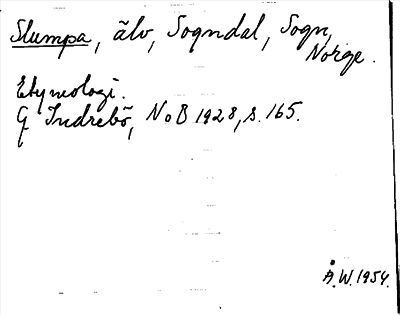 Slumpa, älv, Sogndal, Sogn,
Norge.
Etymologi.
G Indrebö, NoB 1928, s. 165.
Å.W. 1954.